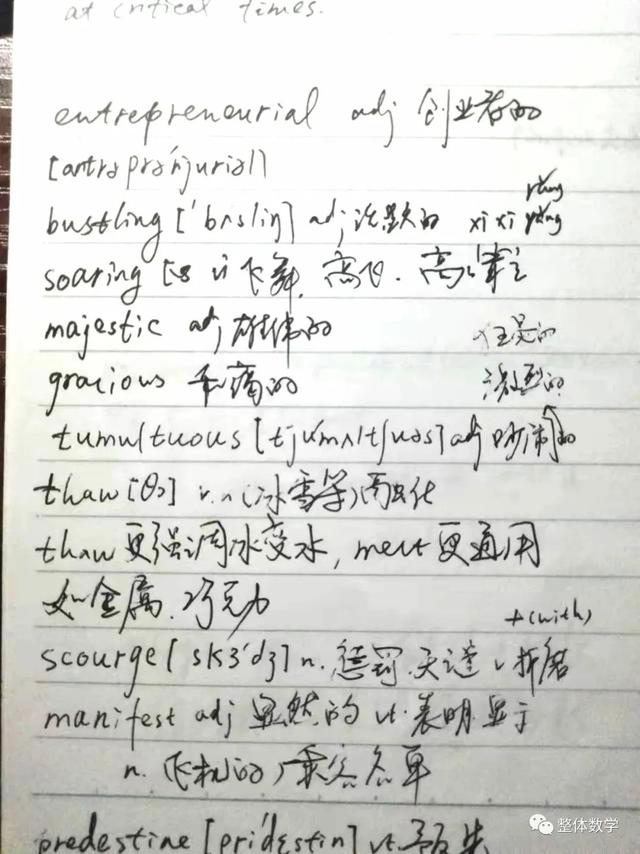 at critical times.
entrepreneurial adj 创业者的
[antrəprə'njuriəl]
bustling ['bʌsliŋ] adj 的 xi xi
soaring vi 飞舞, 高飞. 高耸
majestic adj 雄伟的
gracious 的
狂暴的
激烈的
tumultuous [tju'mʌltʃuəs] adj 吵闹的
thaw [θɔ] v.n (冰雪等)融化
thaw更强调冰变水, melt更通用
如金属. 巧克力
+(with)
scourge [skɜ'dʒ] n. 惩罚. 天谴 v 折磨
manifest adj 显然的 vt. 表明. 显示
n. (飞机的)乘客名单
predestine [pri'destin] vt.
整体数学